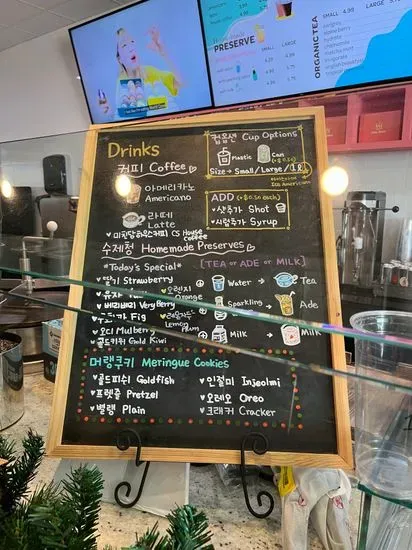 PRESERVE
SMALL LARGE
ORGANIC TEA
SMALL 4.99 LARGE 5.99
chamomile
Drinks
커피 Coffee
아메리카노
Americano
라떼
Latte
CS House
Coffee
컵옵션 Cup Options
Plastic
Can
(+$0.5)
Size → Small/Large/1L
Ice Americano
ADD (+$0.50 each)
샷추가 Shot
시럽추가 Syrup
수제청 Homemade Preserves
*Today's Special*
[TEA OR ADE OR MILK]
딸기 Strawberry
유자
오렌지
Orange
베리베리 Very Berry
Fig
Lemon
Plum
오디 Mulberry
골드키위 Gold Kiwi
Water → Tea
Sparkling
Ade
Milk
Milk
머랭쿠키 Meringue Cookies
골드피쉬 Goldfish
인절미 Injeolmi
프레즐 Pretzel
오레오 Oreo
플레인 Plain
크래커 Cracker